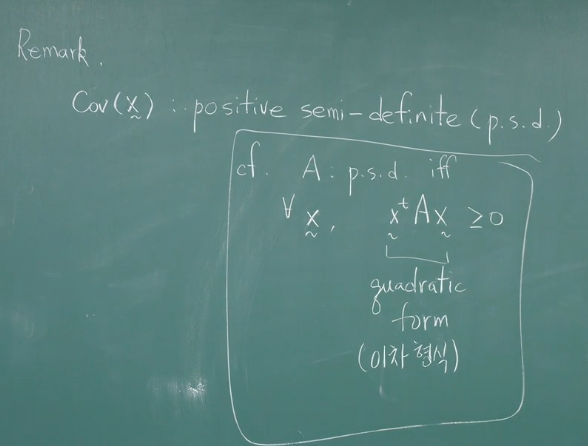 Remark.
Cov(x̰) : positive semi-definite (p.s.d.)
cf. A : p.s.d. iff
∀ x̰, x̰ᵗAx̰ ≥ 0
quadratic
form
(이차형식)